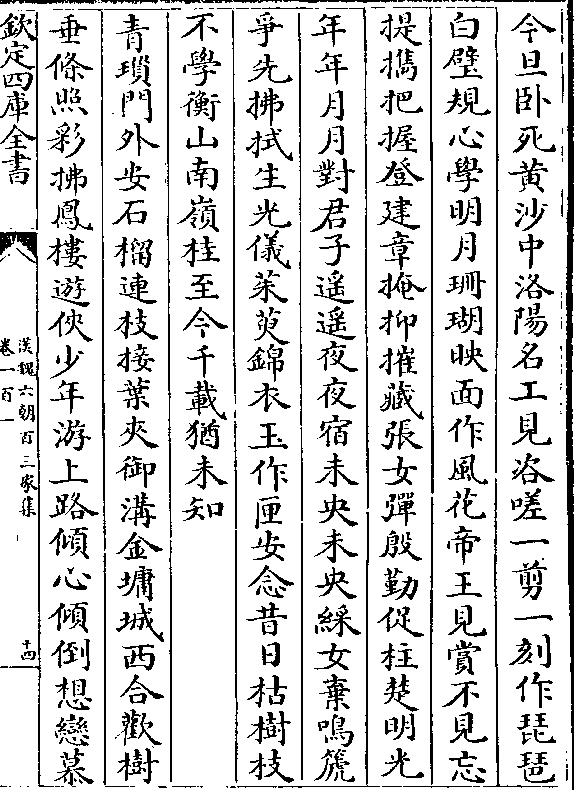 今旦卧死黄沙中洛陽名工見咨嗟一剪一刻作琵琶
白璧規心學明月珊瑚映面作風花帝王見賞不見忘
提攜把握登建章掩抑摧藏張女彈殷勤促柱楚明光
年年月月對君子遥遥夜夜宿未央未央綵女棄鳴篪
爭先拂拭生光儀茱萸錦衣玉作匣安念昔日枯樹枝
不學衡山南嶺桂至今千載猶未知
青瑣門外安石榴連枝接葉夾御溝金墉城西合歡樹
垂條照彩拂鳳樓遊俠少年游上路傾心傾倒想戀慕
欽定四庫全書
漢魏六朝百三家集
卷一百一
十四